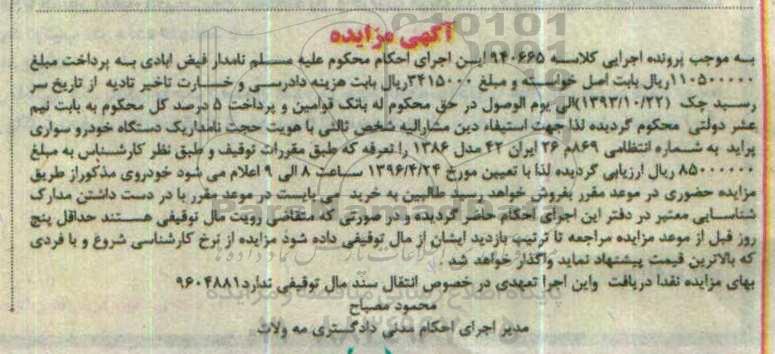 آگهی مزایده
به موجب پرونده اجرایی کلاسه ۹۴۰۶۶۵ این اجرای احکام محکوم علیه مسلم نامدار فیض ابادی به پرداخت مبلغ
۱۱۰۵۰۰۰۰۰ریال بابت اصل خواسته و مبلغ ۳۴۱۵۰۰۰ریال بابت هزینه دادرسی و خسارت تاخیر تادیه از تاریخ سر
رسید چک (۱۳۹۳/۱۰/۲۲)الی یوم الوصول در حق محکوم له بانک قوامین و پرداخت ۵ درصد کل محکوم به بابت نیم
عشر دولتی محکوم گردیده لذا جهت استیفاء دین مشارالیه شخص ثالثی با هویت حجت نامداریک دستگاه خودرو سواری
پراید به شماره انتظامی ۸۶۹م ۲۶ ایران ۴۲ مدل ۱۳۸۶ را تعرفه که طبق مقررات توقیف و طبق نظر کارشناس به مبلغ
۸۵۰۰۰۰۰۰ ریال ارزیابی گردیده لذا با تعیین مورخ ۱۳۹۶/۴/۲۴ ساعت ۸ الی ۹ اعلام می شود خودروی مذکوراز طریق
مزایده حضوری در موعد مقرر بفروش خواهد رسید طالبین به خرید می بایست در موعد مقرر با در دست داشتن مدارک
شناسایی معتبر در دفتر این اجرای احکام حاضر گردیده و در صورتی که متقاضی رویت مال توقیفی هستند حداقل پنج
روز قبل از موعد مزایده مراجعه تا ترتیب بازدید ایشان از مال توقیفی داده شود مزایده از نرخ کارشناسی شروع و با فردی
که بالاترین قیمت پیشنهاد نماید واگذار خواهد شد .
بهای مزایده نقدا دریافت واین اجرا تعهدی در خصوص انتقال سند مال توقیفی ندارد۹۶۰۴۸۸۱
محمود مصباح
مدیر اجرای احکام مدنی دادگستری مه ولات